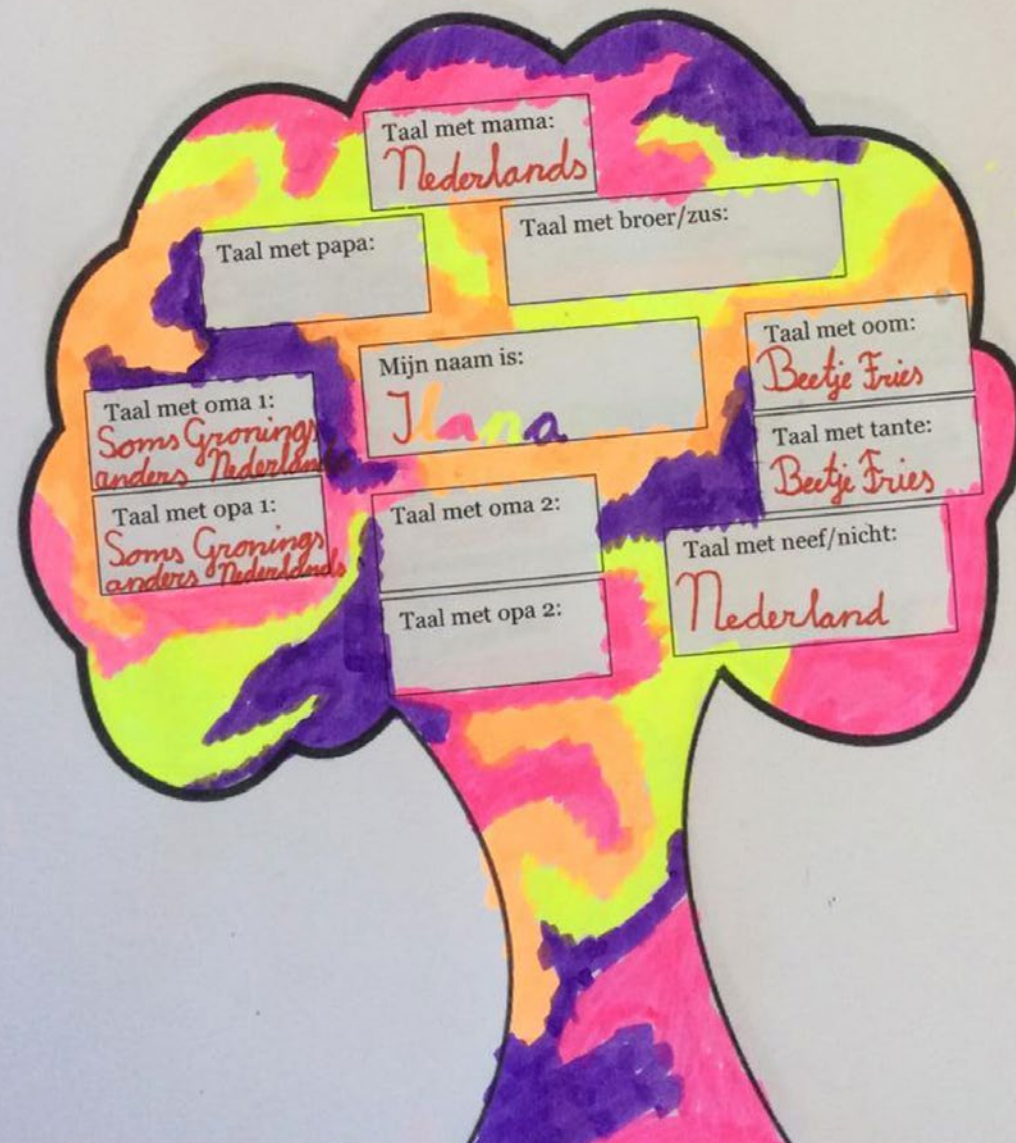 Taal met mama:
Nederlands
Taal met papa:
Taal met broer/zus:
Mijn naam is:
Ilana
Taal met oom:
Beetje Fries
Taal met tante:
Beetje Fries
Taal met oma 1:
Soms Gronings
anders Nederlands
Taal met opa 1:
Soms Gronings
anders Nederlands
Taal met oma 2:
Taal met opa 2:
Taal met neef/nicht:
Nederland